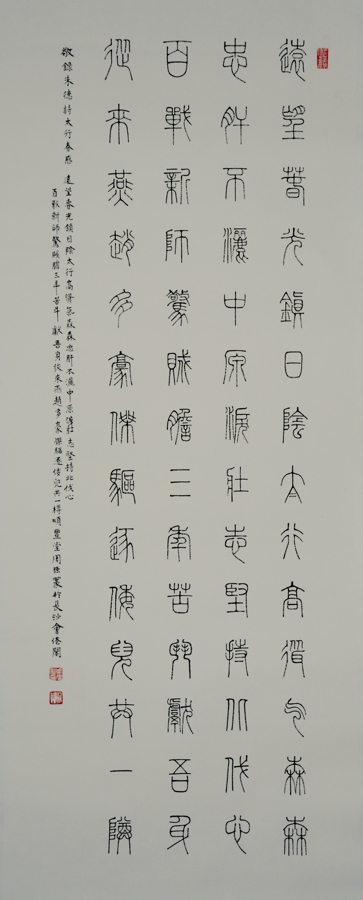 遠望萅光鎮日陰太行高聳气森森
忠肝不灑中原淚壯志堅持北伐心
百戰新師驚賊膽三年苦鬥獻吾身
從來燕趙多豪傑驅逐倭兒共一樽
敬錄朱德詩太行春感 遠望春光鎮日陰太行高聳氣森森忠肝不灑中原淚壯志堅持北伐心
百戰新師驚賊膽三年苦鬥獻吾身從來燕趙多豪傑驅逐倭兒共一樽 豐堂周 於長沙